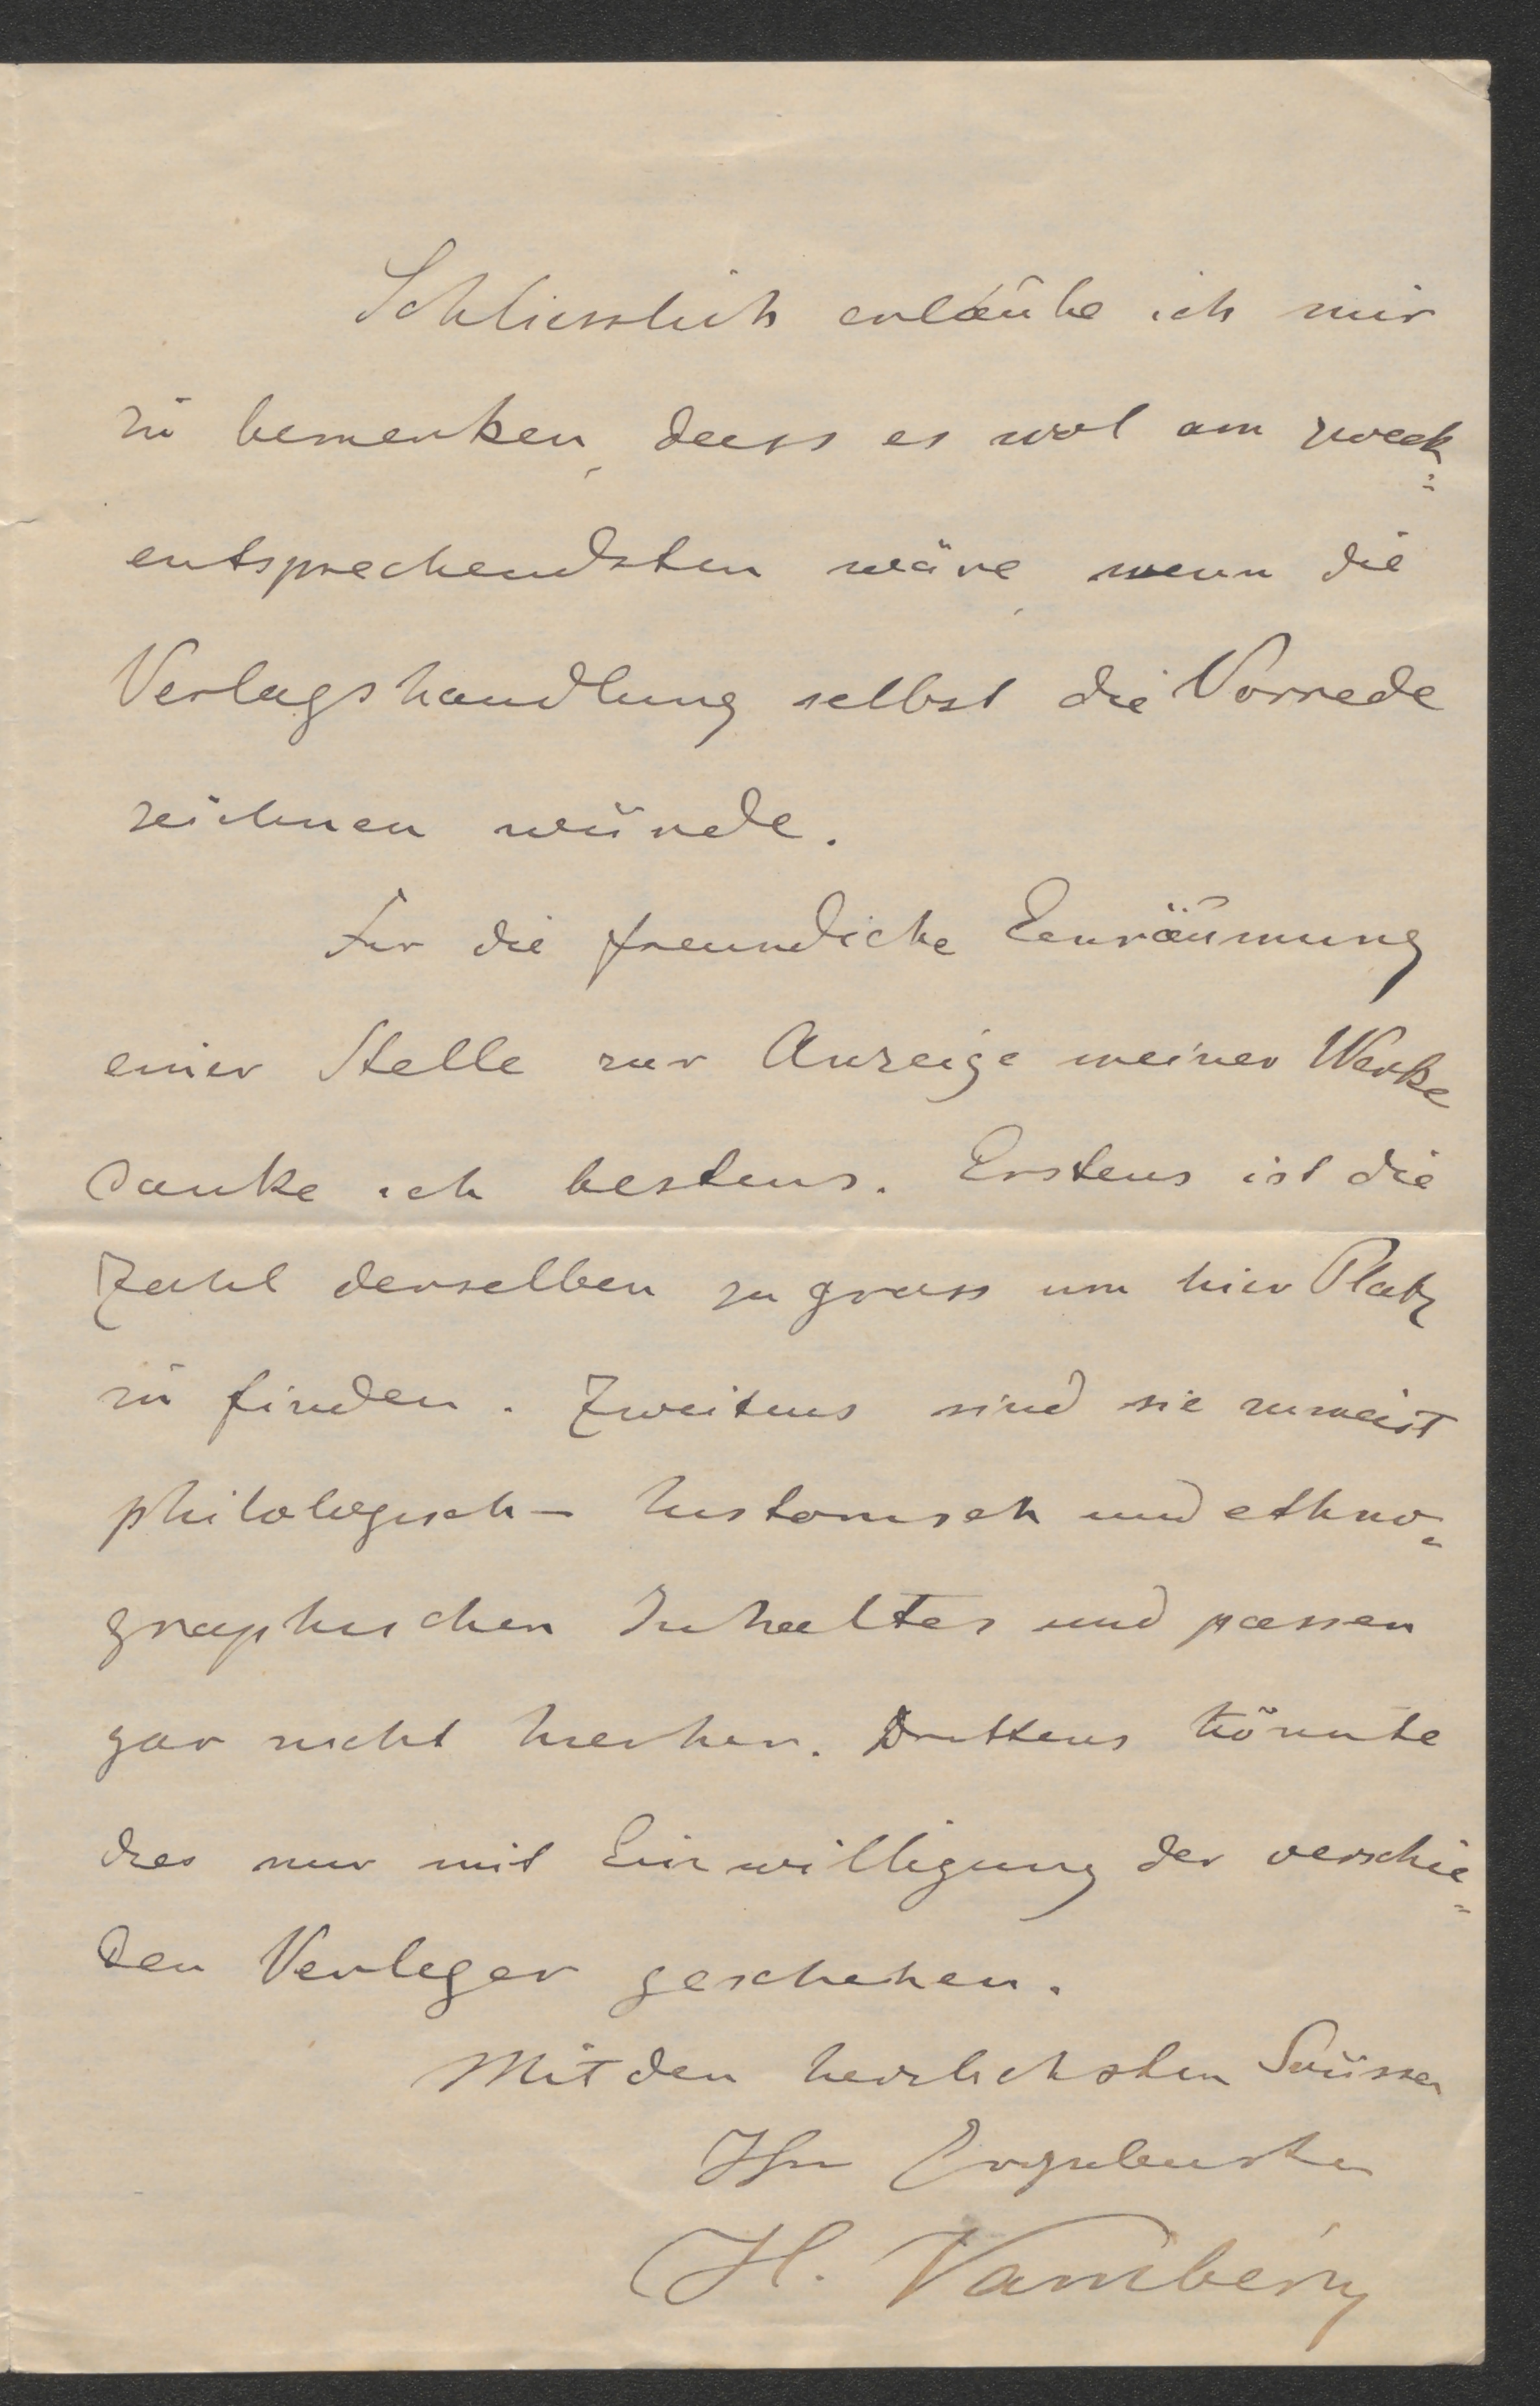 Schliesslich erlaube ich mir
zu bemerken, dass es wol am zweck=
entsprechendsten wäre, wenn die
Verlagshandlung selbst die Vorrede
zeichnen würde.
Fur die freundliche Einräumung
einer Stelle zur Anzeige meiner Werke
danke ich bestens. Erstens ist die
Zahl derselben zu gross um hier Platz
zu finden. Zweitens sind sie zumeist
philologisch- historisch und ethno=
graphischen Inhaltes und passen
gar nicht hierher. Drittens könnte
dies nur mit Einwilligung der verschie=
den Verleger geschehen.
Mit den herzlichsten Grüssen
Ihr Ergebenster
H. Vambéry